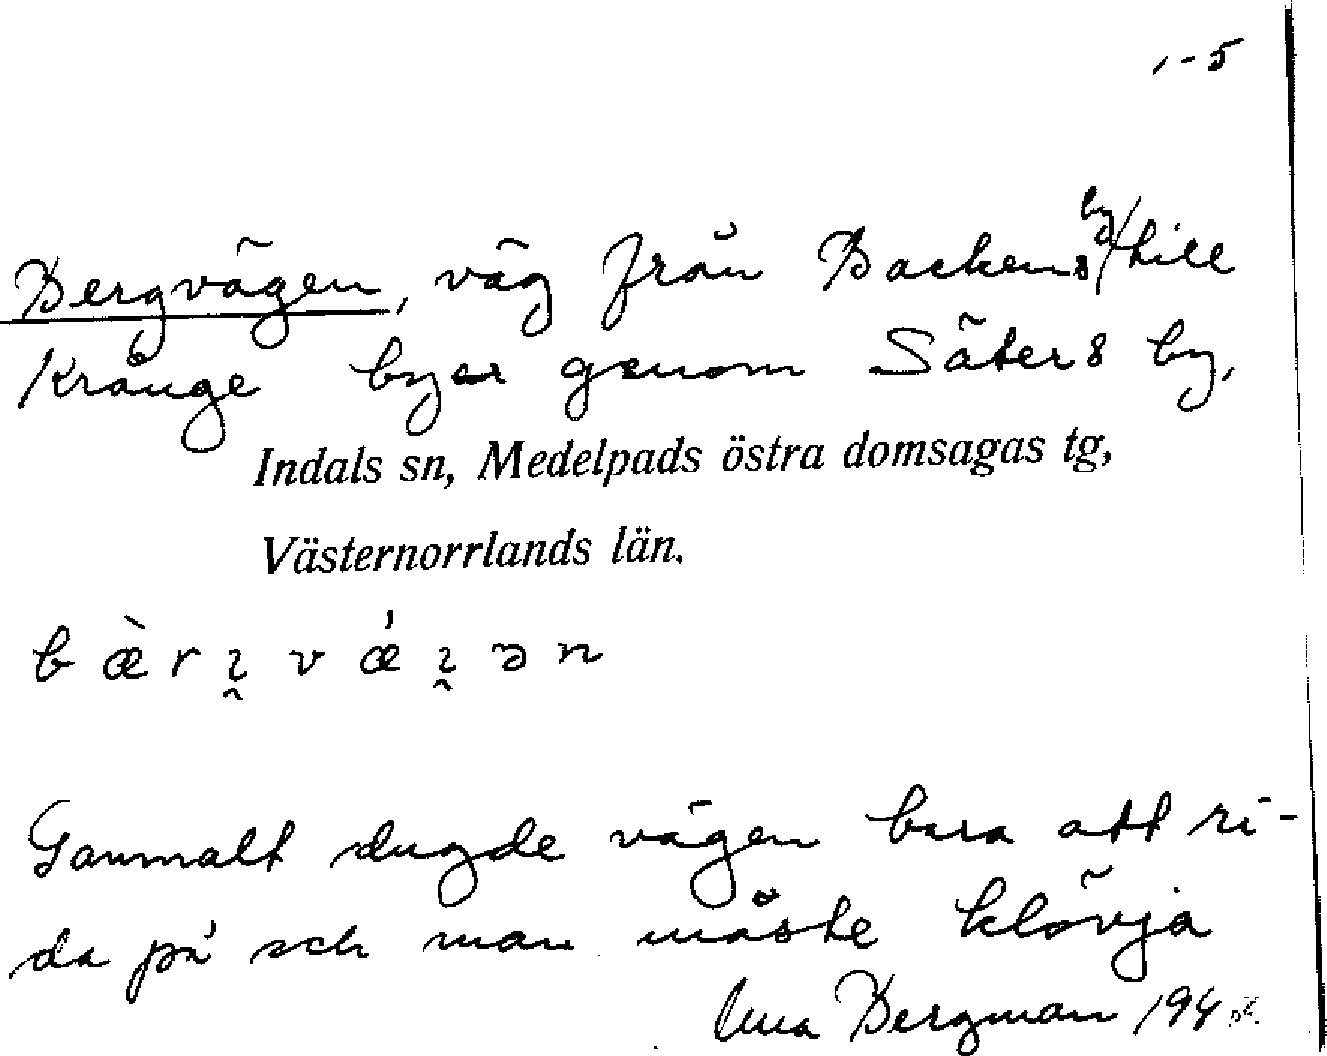 1-5
Bergvägen, väg från Backens by till
Krånge byar genom Säters by,
Indals sn, Medelpads östra domsagas tg,
Västernorrlands län.
b æ̀ r ʒ̯ v ǽ ʒ̯ ə n
Gammalt dugde vägen bara att ri-
da på och man måste klövja
Bergman 194